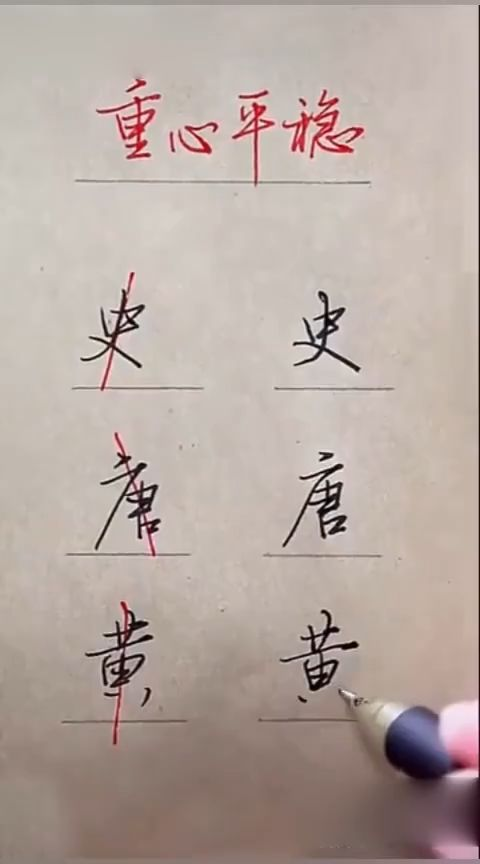 重心平稳
史 史
唐 唐
黄 黄